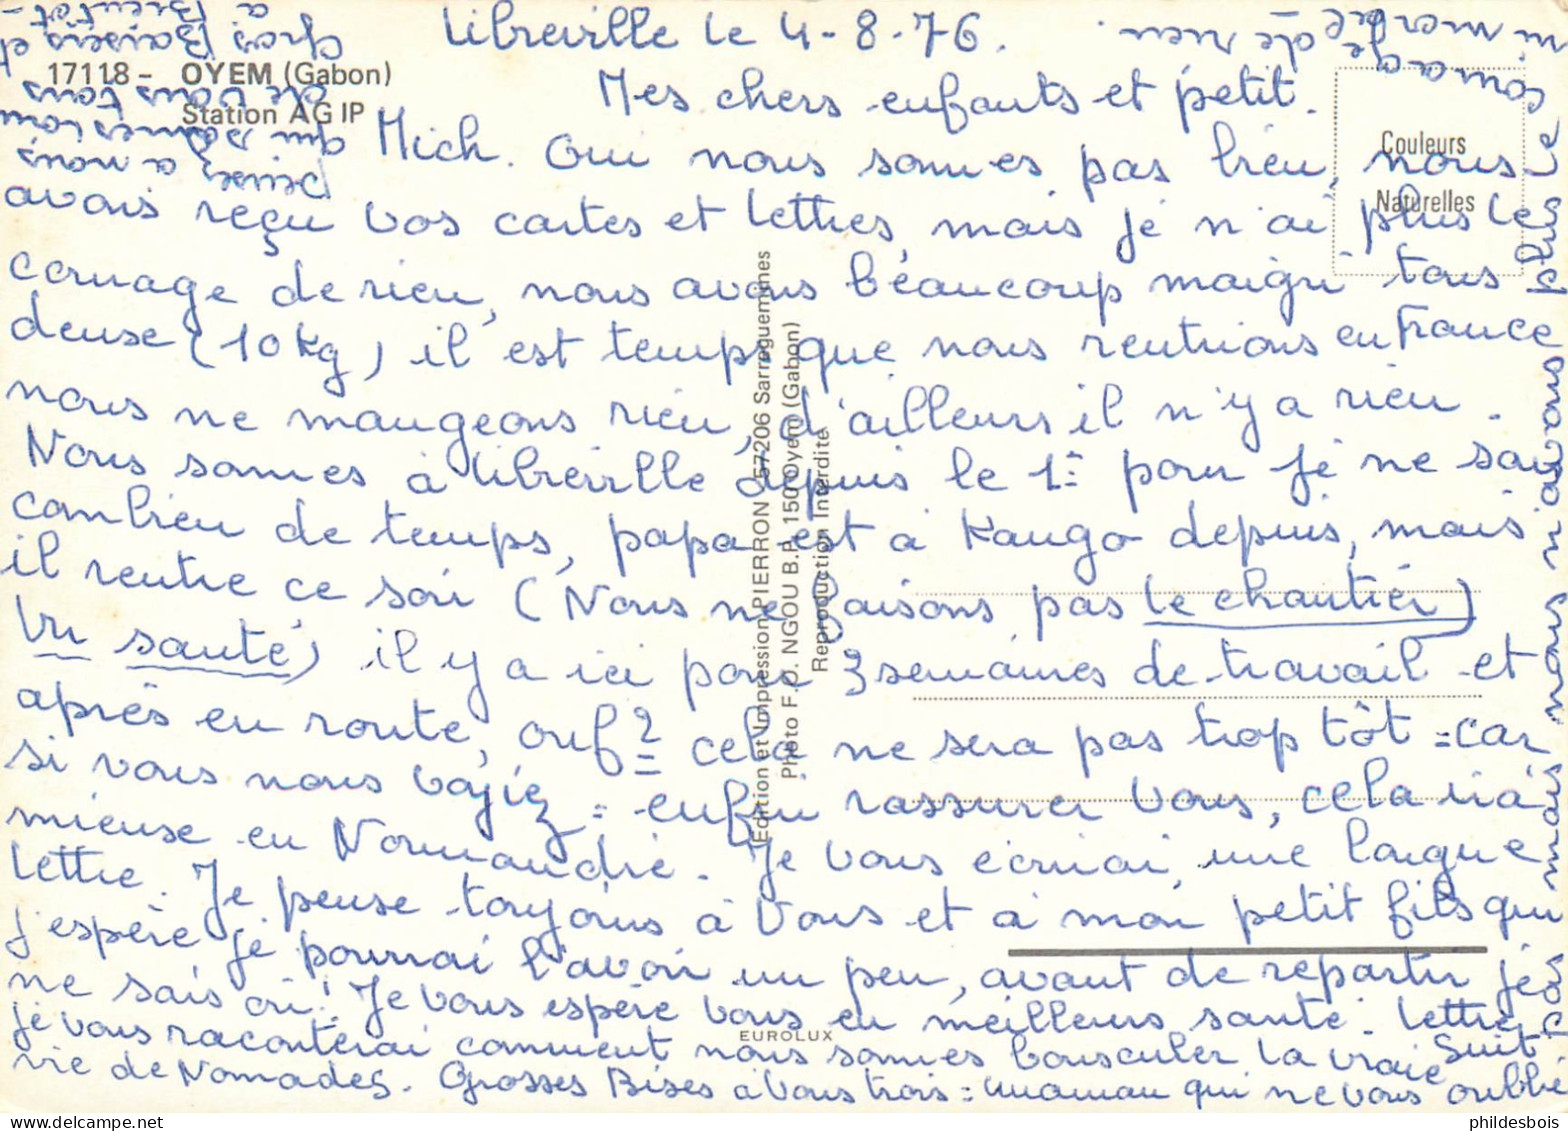 Libreville le 4-8-76.
17118 - OYEM (Gabon)
Station AGIP
Couleurs
Naturelles
Mes chers enfants et petit
Mich. Oui nous sommes pas bien, nous
avons reçu vos cartes et lettres, mais je n'ai plus le
courage de rien, nous avons beaucoup maigri tous
deuse (10kg) il est temps que nous rentrions en France
nous ne mangeons rien, d'ailleurs il n'y a rien.
Nous sommes à Libreville depuis le 1er pour je ne sais
combien de temps, papa est à Kango depuis, mais
il rentre ce soir (Nous ne faisons pas le chantier)
vu santé) il y a ici pour 3 semaines de travail et
après en route, ouf? cela ne sera pas trop tôt = car
si vous nous voyiez = enfin rassurer vous, cela irai
mieuse en Normandie. Je vous écrirai, une longue
lettre. Je pense toujours à vous et à mon petit fils qui
j'espère je pourrai l'avoir un peu, avant de repartir je
ne sais où! Je vous espère vous en meilleurs santé. lettre
je vous raconterai comment nous sommes bousculer la vraie suit
vie de Nomades. Grosses Bises à vous trois = maman qui ne vous oublie
pas mais nous n'avons plus le
courage de rien
ni merde de rien
pensez à nous
qui sommes loin
de vous tous
Gros Baisers et
à Bientôt -
Edition et Impression PIERRON 57206 Sarreguemines
Photo F.O. NGOU B.P. 150 Oyem (Gabon)
Reproduction Interdite
EUROLUX
phildesbois